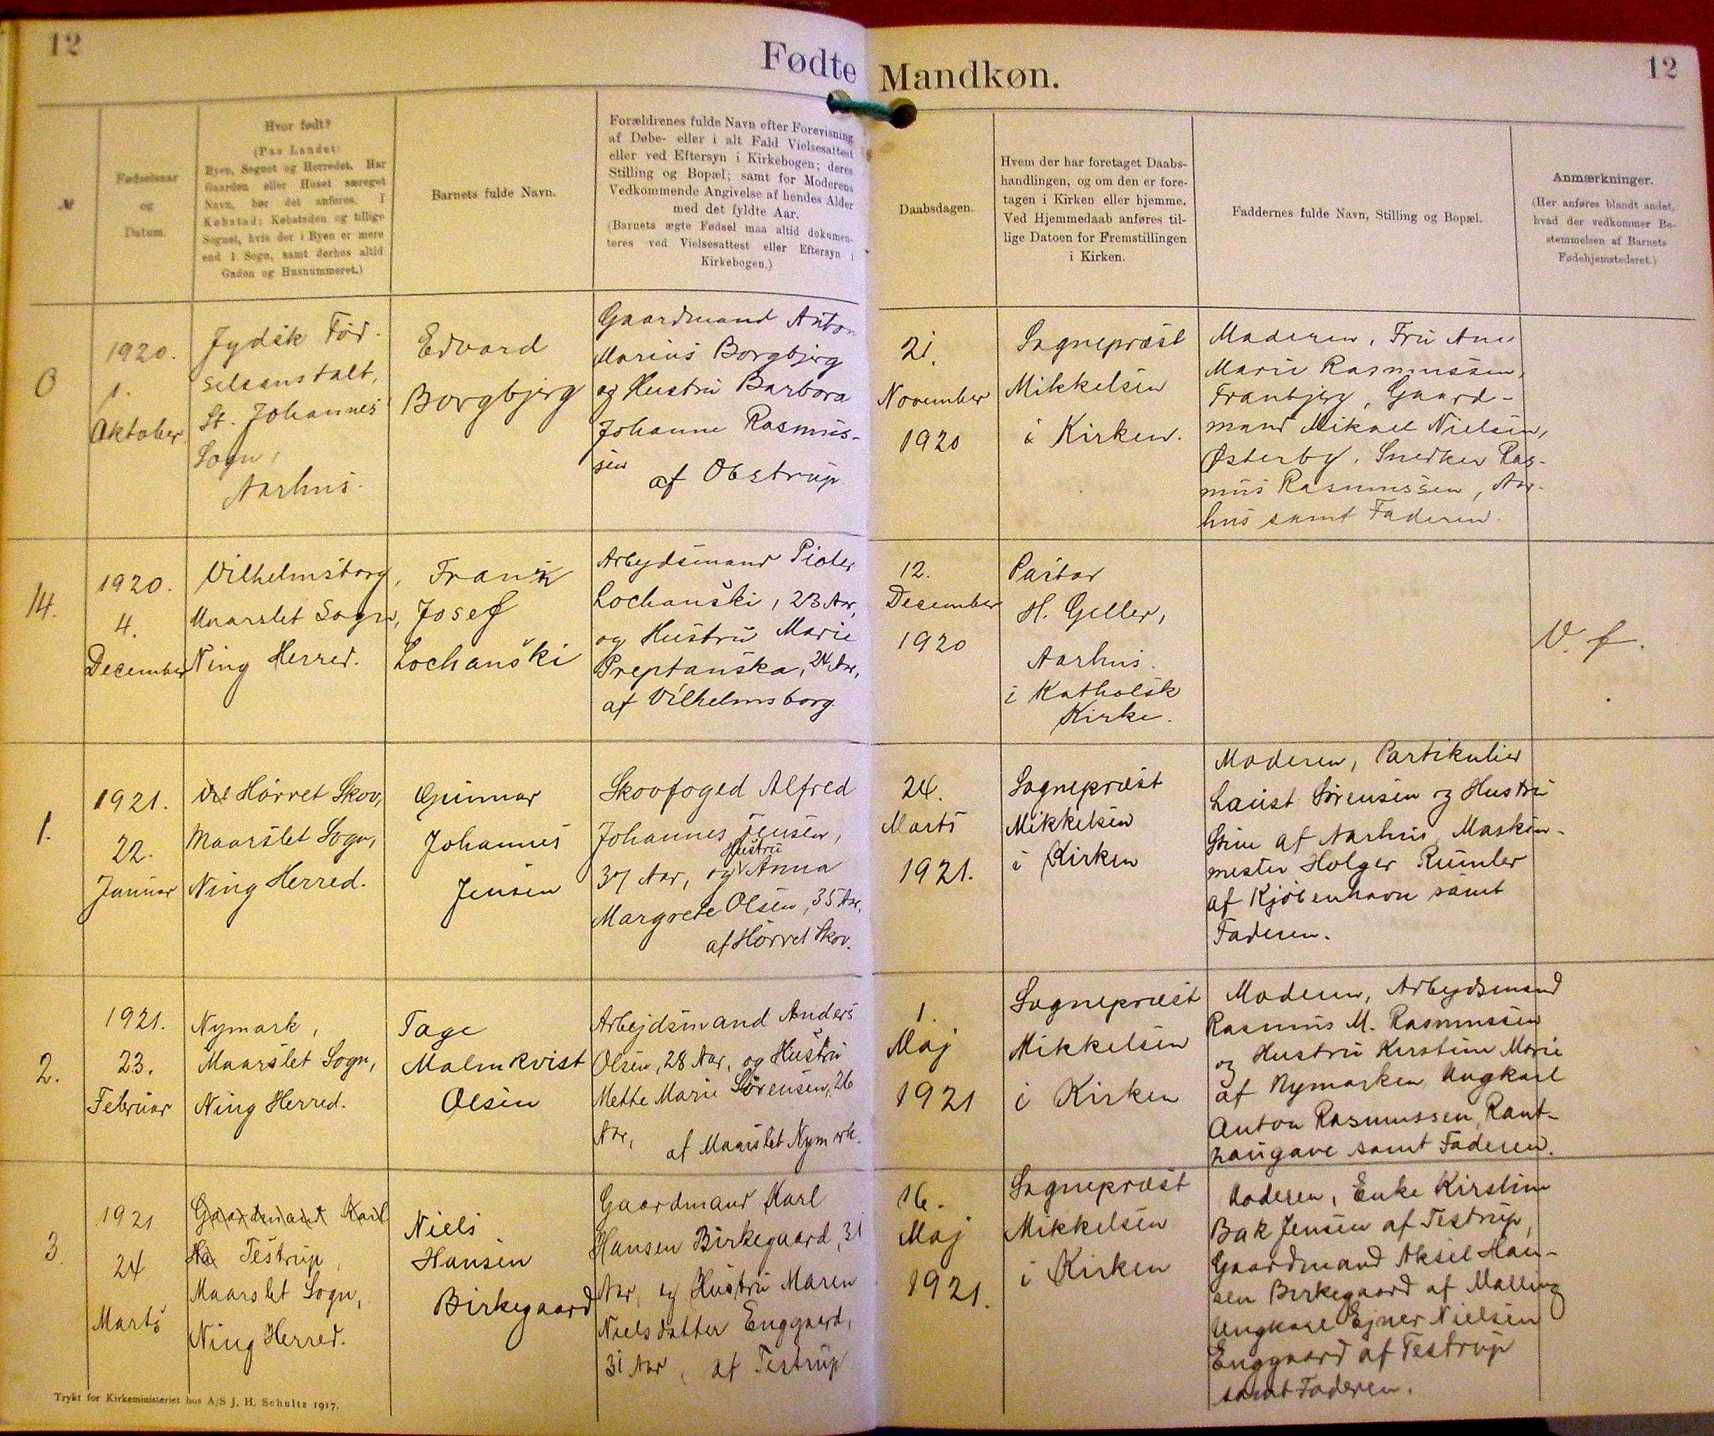 12
Fødte Mandkøn.
12
№
Fødselsaar
og
Datum.
Hvor født?
(Paa Landet:
Byen, Sognet og Herredet. Har
Gaarden eller Huset særeget
Navn, bør det anføres. I
Købstad: Købstaden og tillige
Sognet, hvis der i Byen er mere
end 1 Sogn, samt derhos altid
Gaden og Husnummeret.)
Barnets fulde Navn.
Forældrenes fulde Navn efter Forevisning
af Døbe- eller i alt Fald Vielsesattest
eller ved Eftersyn i Kirkebogen; deres
Stilling og Bopæl; samt for Moderens
Vedkommende Angivelse af hendes Alder
med det fyldte Aar.
(Barnets ægte Fødsel maa altid dokumen-
teres ved Vielsesattest eller Eftersyn i
Kirkebogen.)
Daabsdagen.
Hvem der har foretaget Daabs-
handlingen, og om den er fore-
tagen i Kirken eller hjemme.
Ved Hjemmedaab anføres til-
lige Datoen for Fremstillingen
i Kirken.
Faddernes fulde Navn, Stilling og Bopæl.
Anmærkninger.
(Her anføres blandt andet,
hvad der vedkommer Be-
stemmelsen af Barnets
Fødehjemstedsret.)
0
1920.
1.
Oktober
Jydsk Fød-
selsanstalt,
St. Johannes
Sogn,
Aarhus.
Edvard
Borgbjerg
Gaardmand Anton
Marius Borgbjerg
og Hustru Barbara
Johanne Rasmus-
sen
af Obstrup
21.
November
1920
Sognepræst
Mikkelsen
i Kirken.
Moderen, Fru Ane
Marie Rasmussen,
Tranbjerg, Gaard-
mand Mikael Nielsen,
Østerby, Snedker Ras-
mus Rasmussen, Aar-
hus samt Faderen.
14.
1920.
4.
December
Vilhelmsborg,
Maarslet Sogn,
Ning Herred.
Franz
Josef
Lochanski
Arbejdsmand Pioter
Lochanski, 23 Aar,
og Hustru Marie
Preptanska, 24 Aar,
af Vilhelmsborg
12.
December
1920
Pastor
H. Geller,
Aarhus.
i Katholsk
Kirke.
V. f.
1.
1921.
22.
Januar
Hørret Skov,
Maarslet Sogn,
Ning Herred.
Gunnar
Johannes
Jensen
Skovfoged Alfred
Johannes Jensen,
Hustru
37 Aar, og Anna
Margrete Olsen, 35 Aar,
af Hørret Skov.
24.
Marts
1921.
Sognepræst
Mikkelsen
i Kirken
Moderen, Partikulier
Laust Sørensen og Hustru
Stine af Aarhus, Maskin-
mester Holger Rumler
af Kjøbenhavn samt
Faderen.
2.
1921.
23.
Februar
Nymark,
Maarslet Sogn,
Ning Herred.
Tage
Malmkvist
Olsen
Arbejdsmand Anders
Olsen, 28 Aar, og Hustru
Mette Marie Sørensen, 26
Aar,
af Maarslet Nymark.
1.
Maj
1921
Sognepræst
Mikkelsen
i Kirken
Moderen, Arbejdsmand
Rasmus M. Rasmussen
og Hustru Kirstine Marie
af Nymarken, Ungkarl
Anton Rasmussen, Rant-
zausgave samt Faderen.
3.
1921
24
Marts
Gaardmand Karl
Ha Testrup,
Maarslet Sogn,
Ning Herred.
Niels
Hansen
Birkegaard
Gaardmand Karl
Hansen Birkegaard, 31
Aar, og Hustru Maren
Nielsdatter Enggaard,
31 Aar, af Testrup
16.
Maj
1921.
Sognepræst
Mikkelsen
i Kirken
Moderen, Enke Kirstine
Bak Jensen af Testrup,
Gaardmand Aksel Han-
sen Birkegaard af Malling
Ungkarl Ejner Nielsen
Enggaard af Testrup
samt Faderen.
Trykt for Kirkeministeriet hos A/S J. H. Schultz 1917.